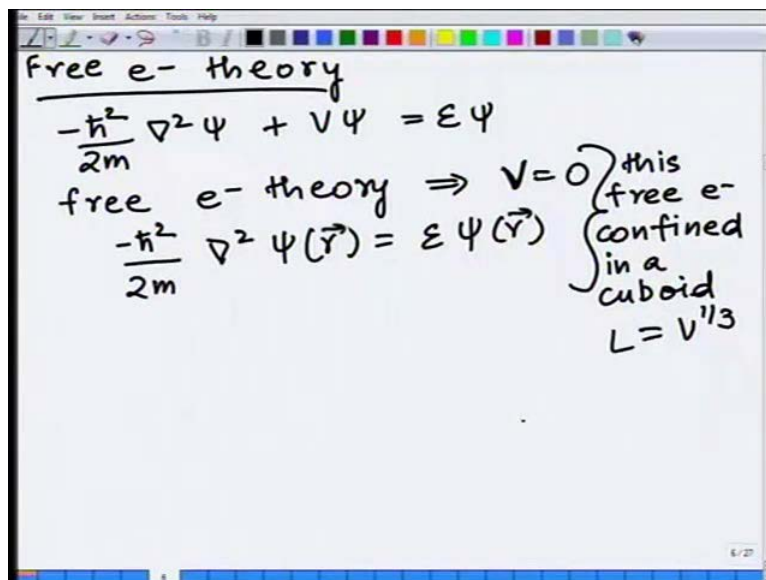 File Edit View Insert Actions Tools Help
Free e- theory
-ħ²/2m ∇²Ψ + VΨ = εΨ
free e- theory ⇒ V = 0
-ħ²/2m ∇² Ψ(r⃗) = ε Ψ(r⃗)
this
free e-
confined
in a
cuboid
L = V^1/3
6/27
6